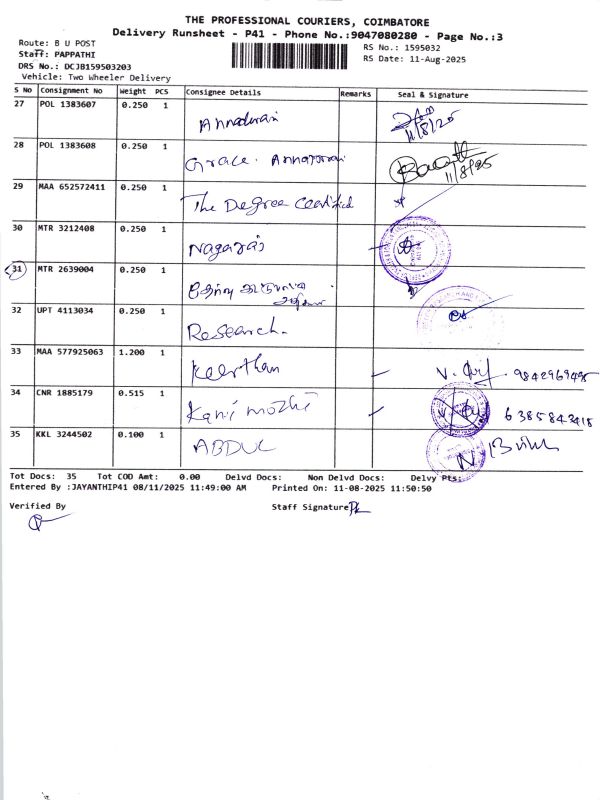 THE PROFESSIONAL COURIERS, COIMBATORE
Delivery Runsheet - P41 - Phone No.:9047080280 - Page No.:3
Route: B U POST
RS No.: 1595032
Staff: PAPPATHI
RS Date: 11-Aug-2025
DRS No.: DCJB159503203
Vehicle: Two Wheeler Delivery
S No Consignment No Weight PCS Consignee Details Remarks Seal & Signature
27 POL 1383607 0.250 1 Annadurai 11/8/25
28 POL 1383608 0.250 1 Grace. 11/8/25
29 MAA 652572411 0.250 1 The Degree
30 MTR 3212408 0.250 1 Nagaraj
31 MTR 2639004 0.250 1
32 UPT 4113034 0.250 1 Research.
33 MAA 577925063 1.200 1 Keerthan
34 CNR 1885179 0.515 1 Kani mozhi
35 KKL 3244502 0.100 1 ABDUL
Tot Docs: 35 Tot COD Amt: 0.00 Delvd Docs: Non Delvd Docs: Delvy Pts:
Entered By :JAYANTHIP41 08/11/2025 11:49:00 AM Printed On: 11-08-2025 11:50:50
Verified By Staff Signature